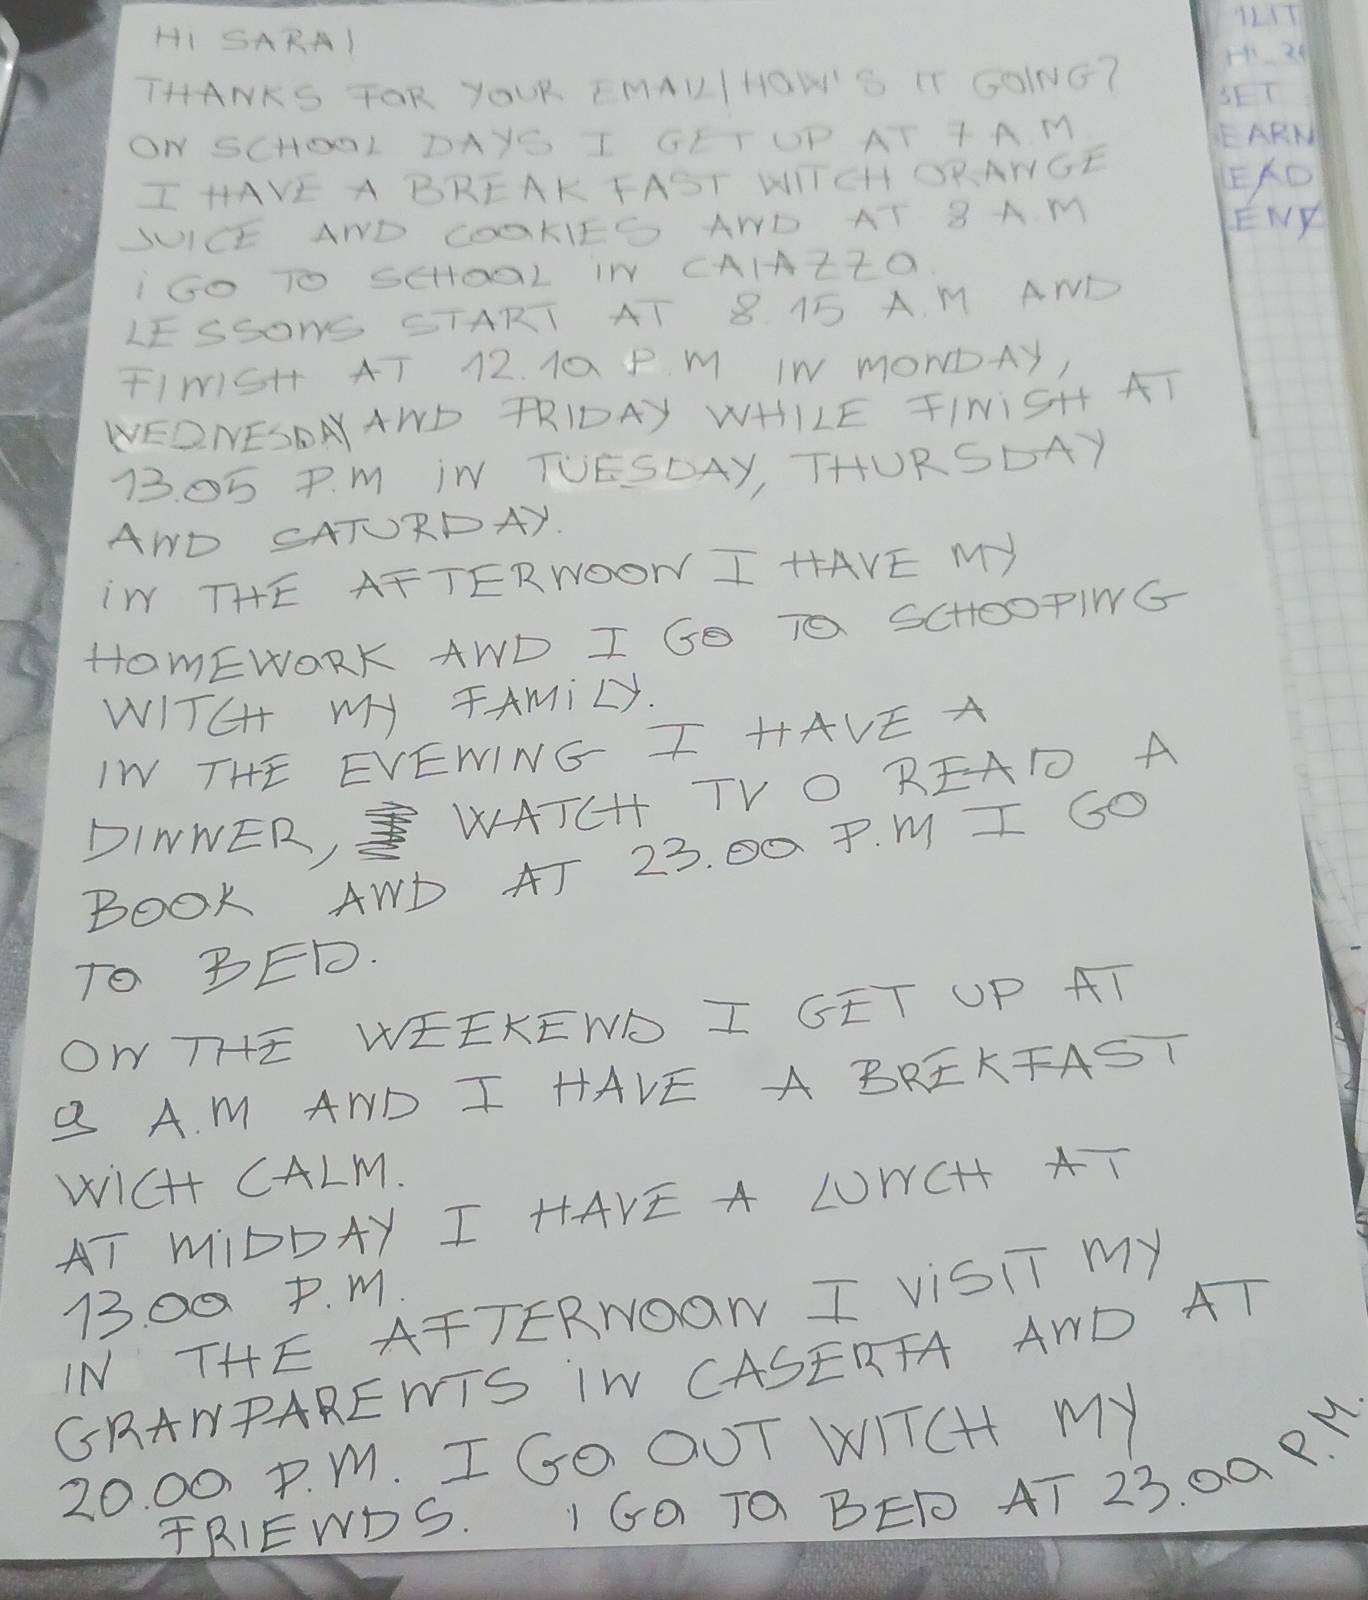 HI SARA!
THANKS FOR YOUR EMAIL! HOW'S IT GOING?
ON SCHOOL DAYS I GET UP AT 7 A.M
I HAVE A BREAKFAST WITCH ORANGE
JUICE AND COOKIES AND AT 8 A.M
i GO TO SCHOOL IN CAIAZZO
LESSONS START AT 8.15 A.M AND
FINISH AT 12.10 P.M IN MONDAY,
WEDNESDAY AND FRIDAY WHILE FINISH AT
13.05 P.M IN TUESDAY, THURSDAY
AND SATURDAY.
IN THE AFTERNOON I HAVE MY
HOMEWORK AND I GO TO SCHOOPING
WITCH MY FAMILY.
IN THE EVENING I HAVE A
DINNER, WATCH TV O READ A
BOOK AND AT 23.00 P.M I GO
TO BED.
ON THE WEEKEND I GET UP AT
9 A.M AND I HAVE A BREKFAST
WICH CALM.
AT MIDDAY I HAVE A LUNCH AT
13.00 P.M.
IN THE AFTERNOON I VISIT MY
GRANPARENTS IN CASERTA AND AT
20.00 P.M. I GO OUT WITCH MY
FRIENDS. I GO TO BED AT 23.00 P.M.
SET
EARN
EAD
ENY